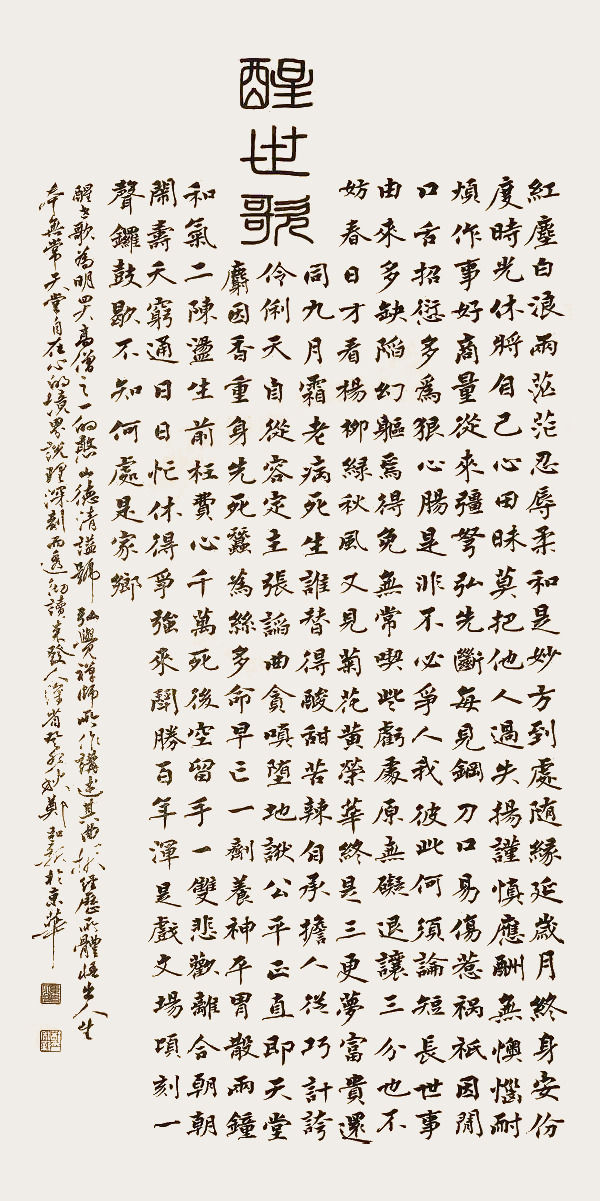 醒世歌
紅塵白浪兩茫茫忍辱柔和是妙方到處随緣延歲月終身安份
度時光休將自己心田昧莫把他人過失揚謹慎應酬無懊惱耐
煩作事好商量從來彊弩弘先斷每見鋼刀口易傷惹祸祇因閒
口舌招愆多爲狠心腸是非不必爭人我彼此何須論短長世事
由來多缺陷幻軀焉得免無常喫些虧處原無礙退讓三分也不
妨春日才看楊柳綠秋風又見菊花黃榮華終是三更夢富貴還
同九月霜老病死生誰替得酸甜苦辣自承擔人從巧計誇
伶俐天自從容定主張諂曲貪嗔墮地獄公平正直即天堂
麝因香重身先死蠶為絲多命早亡一劑養神平胃散兩鐘
和氣二陳盪生前枉費心千萬死後空留手一雙悲歡離合朝朝
鬧壽夭窮通日日忙休得爭強來鬥勝百年渾是戲文場頃刻一
聲鑼鼓歇不知何處是家鄉
醒世歌為明四大高僧之一的憨山德清謚號弘覺禪師所作講述其曲折經歷所體悟出人生
本無常天堂自在心的境界說理深刻而透彻讀來發人深省鄭於京華